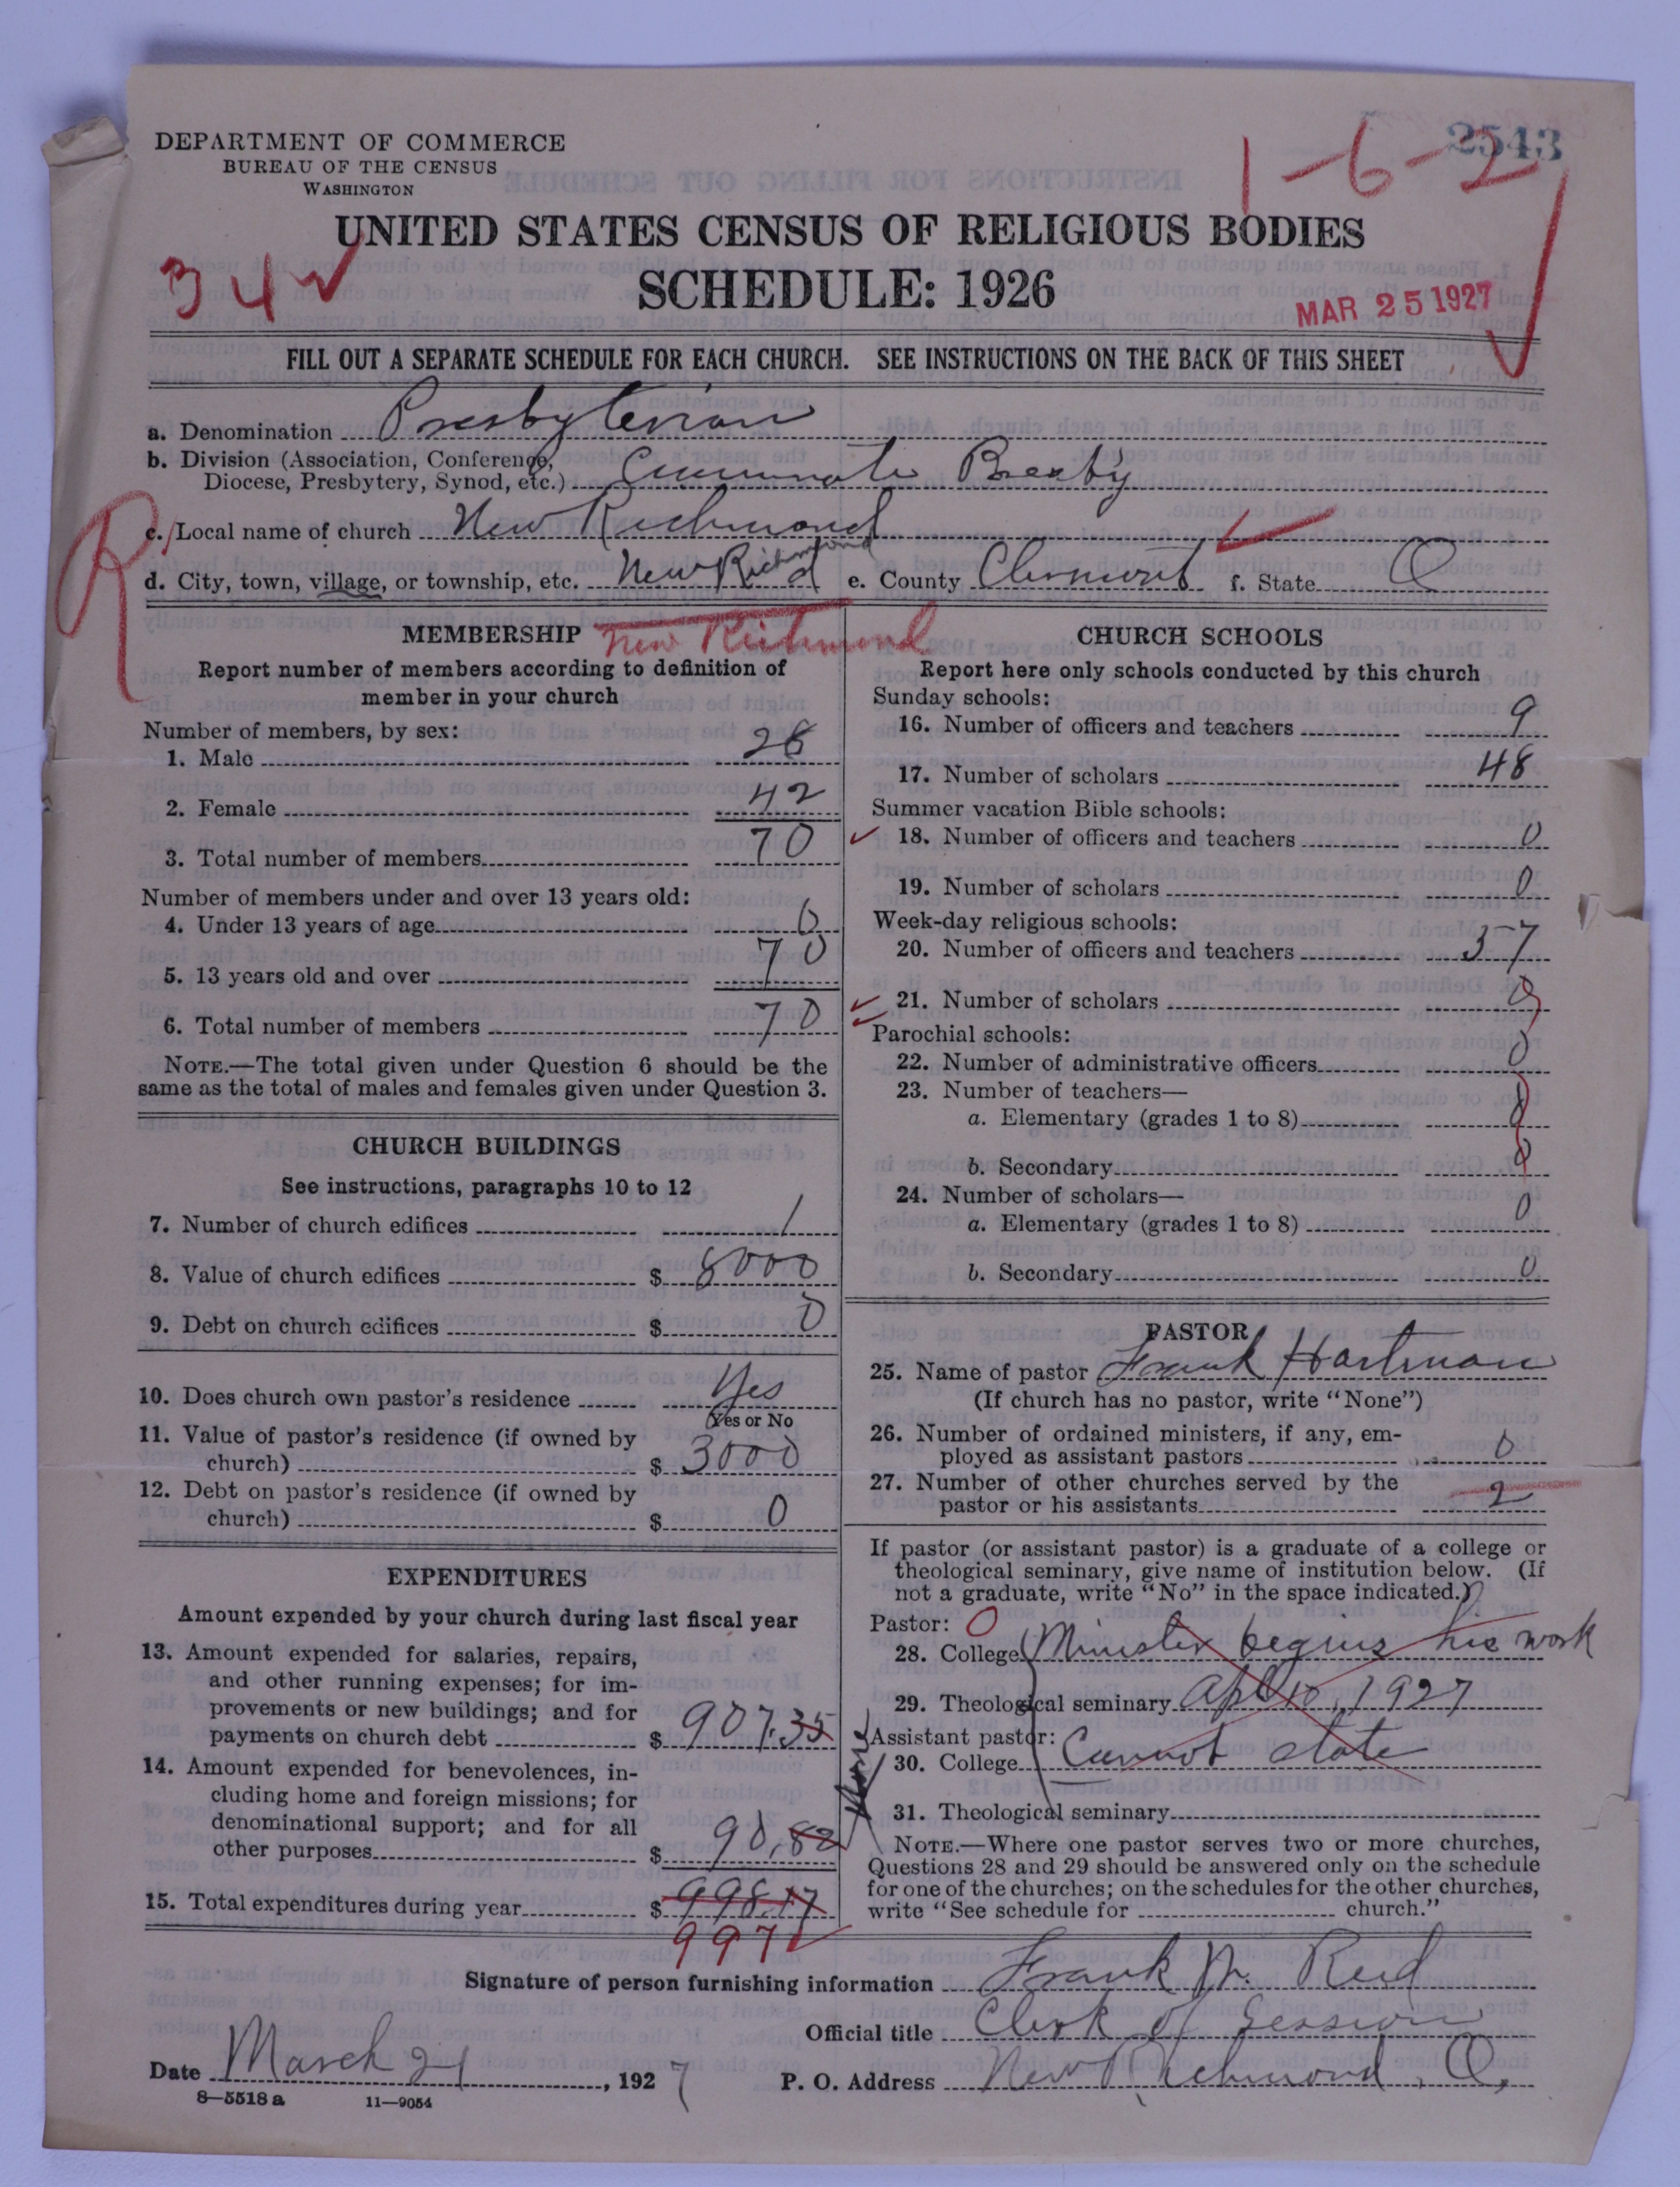 2543
1-6-2
DEPARTMENT OF COMMERCE
BUREAU OF THE CENSUS
WASHINGTON
UNITED STATES CENSUS OF RELIGIOUS BODIES
34
SCHEDULE: 1926
MAR 25 1927
FILL OUT A SEPARATE SCHEDULE FOR EACH CHURCH. SEE INSTRUCTIONS ON THE BACK OF THIS SHEET
a. Denomination Presbyterian
b. Division (Association, Conference,
Diocese, Presbytery, Synod, etc.) Cincinnati Presby
R
c. Local name of church New Richmond
d. City, town, village, or township, etc. New Richmond e. County Clermont f. State O
MEMBERSHIP New Richmond
Report number of members according to definition of
member in your church
Number of members, by sex:
1. Male 28
2. Female 42
3. Total number of members 70
Number of members under and over 13 years old:
4. Under 13 years of age 0
5. 13 years old and over 70
6. Total number of members 70
NOTE.—The total given under Question 6 should be the
same as the total of males and females given under Question 3.
CHURCH BUILDINGS
See instructions, paragraphs 10 to 12
7. Number of church edifices 1
8. Value of church edifices $ 8000
9. Debt on church edifices $ 0
10. Does church own pastor's residence Yes
Yes or No
11. Value of pastor's residence (if owned by
church) $ 3000
12. Debt on pastor's residence (if owned by
church) $ 0
EXPENDITURES
Amount expended by your church during last fiscal year
13. Amount expended for salaries, repairs,
and other running expenses; for im-
provements or new buildings; and for
payments on church debt $ 907.35
14. Amount expended for benevolences, in-
cluding home and foreign missions; for
denominational support; and for all
other purposes $ 90.82
15. Total expenditures during year $ 998.17
997
CHURCH SCHOOLS
Report here only schools conducted by this church
Sunday schools:
16. Number of officers and teachers 9
17. Number of scholars 48
Summer vacation Bible schools:
18. Number of officers and teachers 0
19. Number of scholars 0
Week-day religious schools:
20. Number of officers and teachers 57
21. Number of scholars 0
Parochial schools:
22. Number of administrative officers 0
23. Number of teachers—
a. Elementary (grades 1 to 8) 0
b. Secondary 0
24. Number of scholars—
a. Elementary (grades 1 to 8) 0
b. Secondary 0
PASTOR
25. Name of pastor Frank Hartman
(If church has no pastor, write "None")
26. Number of ordained ministers, if any, em-
ployed as assistant pastors 0
27. Number of other churches served by the
pastor or his assistants 2
If pastor (or assistant pastor) is a graduate of a college or
theological seminary, give name of institution below. (If
not a graduate, write "No" in the space indicated.)
Pastor: 0
28. College Minister begins his work
29. Theological seminary Apl 10, 1927
Assistant pastor:
None
30. College Cannot state
31. Theological seminary
NOTE.—Where one pastor serves two or more churches,
Questions 28 and 29 should be answered only on the schedule
for one of the churches; on the schedules for the other churches,
write "See schedule for church."
Signature of person furnishing information Frank M. Reed
Official title Clerk of Session
Date March 21, 1927 P. O. Address New Richmond, O.
8—5518 a 11—9054